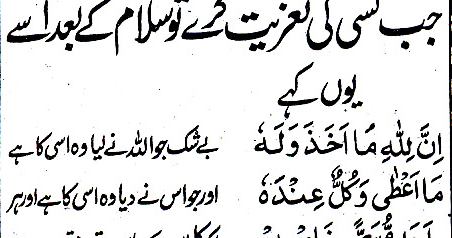 جب کسی کی تعزیت کرے تو سلام کے بعد اسے
یوں کہے
اِنَّ لِلّٰهِ مَا اَخَذَ وَلَهٗ
بے شک جو اللہ نے لیا وہ اسی کا ہے
مَا اَعْطٰى وَكُلٌّ عِنْدَهٗ
اور جو اس نے دیا وہ اسی کا ہے اور ہر